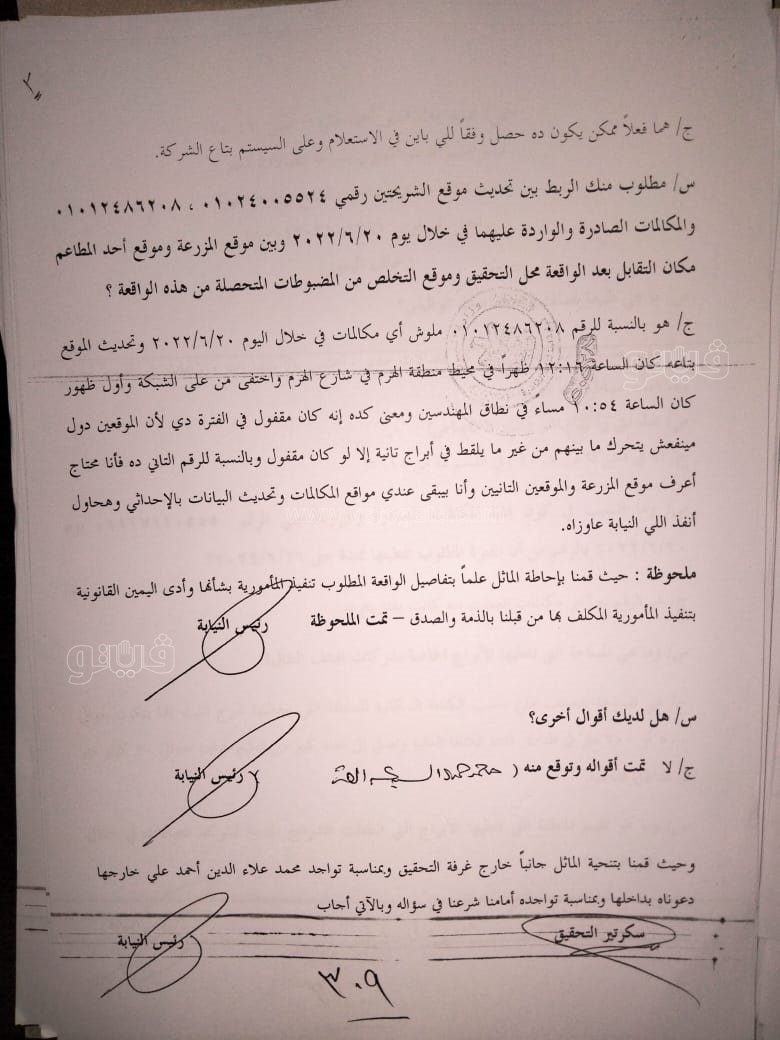 ٣
ج/ هما فعلاً ممكن يكون ده حصل وفقاً للي باين في الاستعلام وعلى السيستم بتاع الشركة.
س/ مطلوب منك الربط بين تحديث موقع الشريحتين رقمي ٠١٠٢٤٠٠٥٥٢٤ ، ٠١٠١٢٤٨٦٢٠٨
والمكالمات الصادرة والواردة عليهما في خلال يوم ٢٠٢٢/٦/٢٠ وبين موقع المزرعة وموقع أحد المطاعم
مكان التقابل بعد الواقعة محل التحقيق وموقع التخلص من المضبوطات المتحصلة من هذه الواقعة ؟
ج/ هو بالنسبة للرقم ٠١٠١٢٤٨٦٢٠٨ ملوش أي مكالمات في خلال اليوم ٢٠٢٢/٦/٢٠ وتحديث الموقع
بتاعه كان الساعة ١٢:١٦ ظهراً في محيط منطقة الهرم في شارع الهرم واختفى من على الشبكة وأول ظهور
كان الساعة ١٠:٥٤ مساء في نطاق المهندسين ومعنى كده إنه كان مقفول في الفترة دي لأن الموقعين دول
مينفعش يتحرك ما بينهم من غير ما يلقط في أبراج تانية إلا لو كان مقفول وبالنسبة للرقم التاني ده فأنا محتاج
أعرف موقع المزرعة والموقعين التانيين وأنا بيبقى عندي مواقع المكالمات وتحديث البيانات بالإحداثي وهحاول
أنفذ اللي النيابة عاوزاه.
ملحوظة : حيث قمنا بإحاطة الماثل علماً بتفاصيل الواقعة المطلوب تنفيذ المأمورية بشأنها وأدى اليمين القانونية
بتنفيذ المأمورية المكلف بها من قبلنا بالذمة والصدق – تمت الملحوظة
رئيس النيابة
ڤيتو
س/ هل لديك أقوال أخرى؟
ج/ لا تمت أقواله وتوقع منه (
رئيس النيابة
وحيث قمنا بتنحية الماثل جانباً خارج غرفة التحقيق وبمناسبة تواجد محمد علاء الدين أحمد علي خارجها
دعوناه بداخلها وبمناسبة تواجده أمامنا شرعنا في سؤاله وبالآتي أجاب
سكرتير التحقيق
رئيس النيابة
٣٠٩